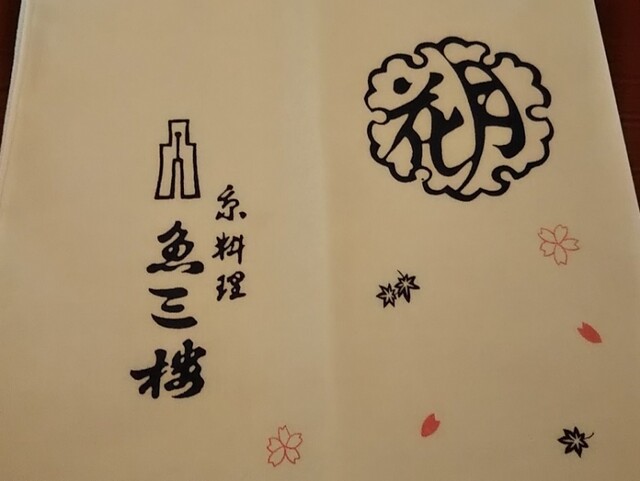 花月
京料理
魚三楼